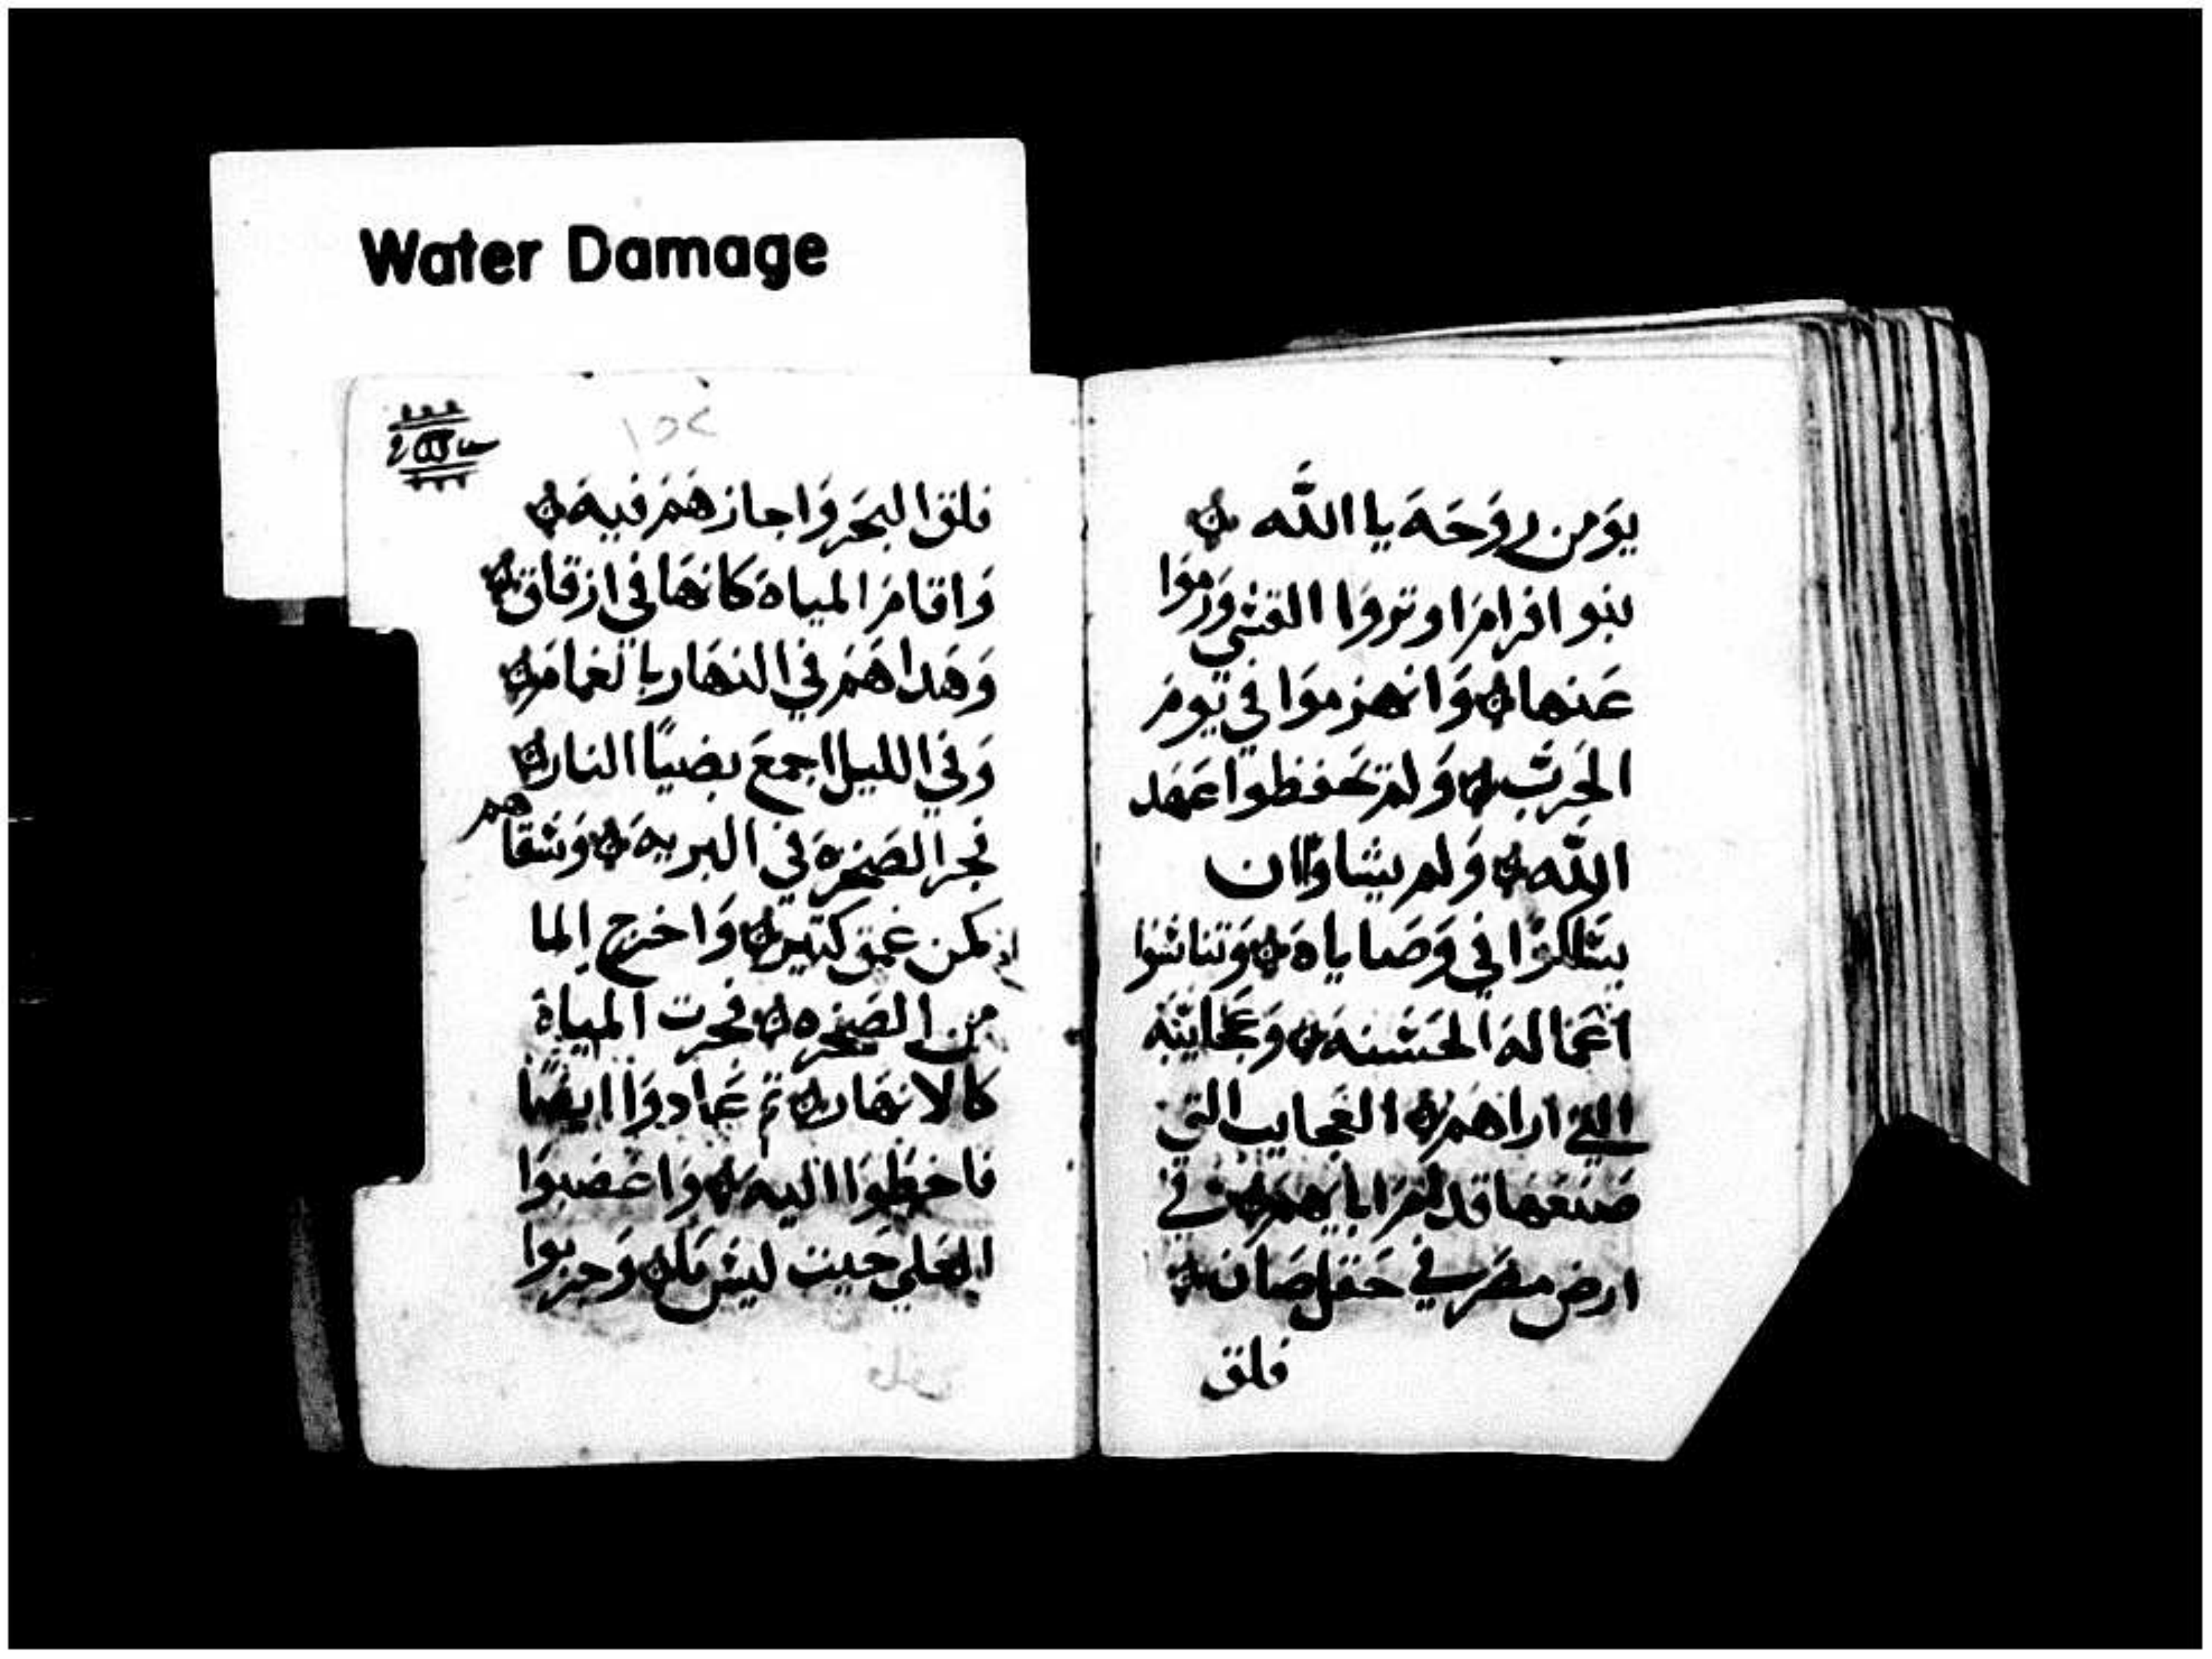 Water Damage
يومن روحه يا الله
بنو افرام اوتروا القسي ورموا
عنها وانهزموا في يوم
الحرب ولم تحفظوا عهد
الله ولم يشاوا ان
يسلكوا في وصاياه وتناسوا
اعماله الحسنه وعجايبه
التي اراهم العجايب التي
صنعها قدام ابايهم في
ارض مصر في حقل صان
فلق
١٥٤
فلق البحر واجازهم فيه
واقام المياه كانها في ازقاق
وهداهم في النهار بالغمام
وفي الليل اجمع بضيا النار
فجر الصخره في البريه وسقاهم
كمن عمق كتير واخرج الما
من الصخره فجرت المياه
كالانهار تم عادوا ايضا
فاخطوا اليه واغضبوا
العلي حيت ليس ما وجربوا